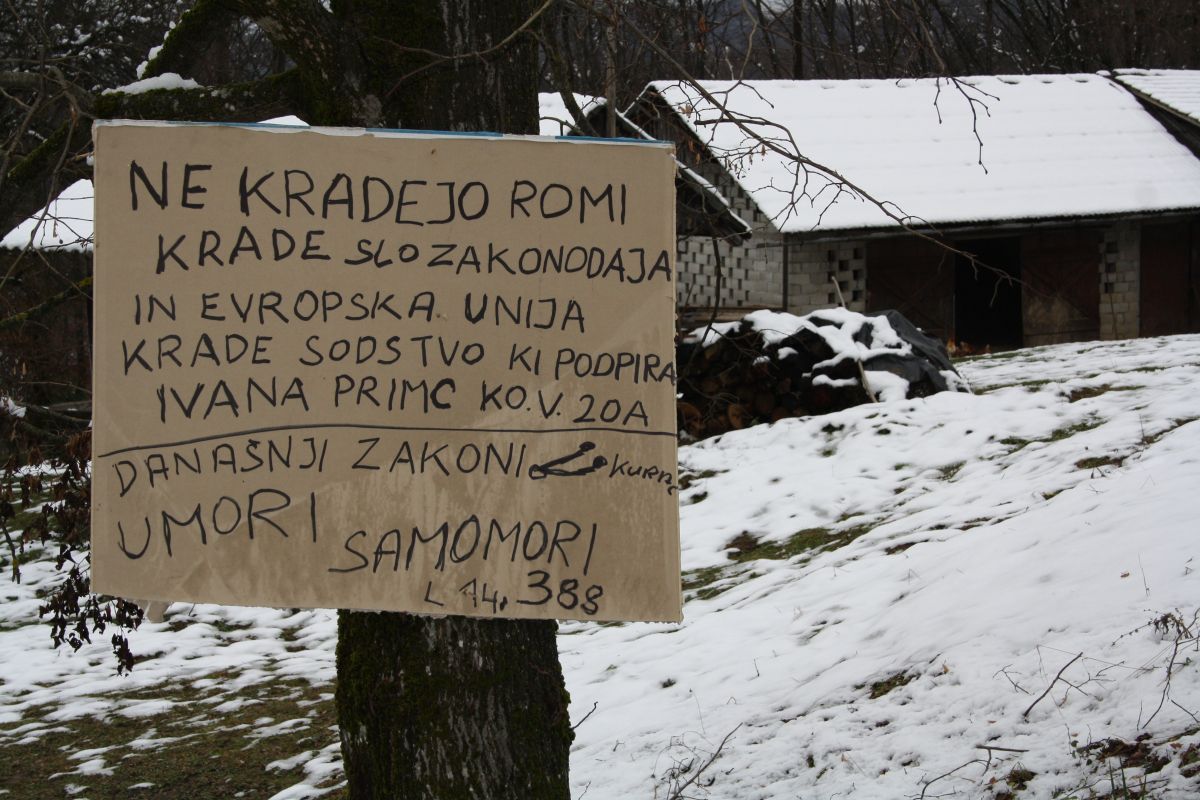 NE KRADEJO ROMI
KRADE SLO ZAKONODAJA
IN EVROPSKA UNIJA
KRADE SODSTVO KI PODPIRA
IVANA PRIMC KO.V. 20A
DANAŠNJI ZAKONI
UMORI
SAMOMORI
L 14, 388